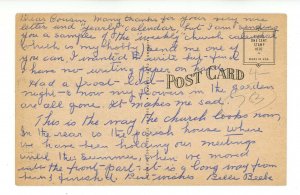 Dear Cousin, Many thanks for your very nice
letter and yearly calendar. But I am sending
you a sample of the weekly church calendar
which is my hobby. Send me one if
you can. I wanted to write by mail
have no writing paper or
Had a frost last
night & now my flowers in the garden
are all gone. It makes me sad.
POST CARD
PLACE
ONE CENT
STAMP
HERE
MADE IN U.S.A.
This is the way the church looks now.
In the rear is the parish house where
we have been holding our meetings
until this summer, when we moved
into the front part; it is a long way from
being finished. Best wishes Belle Beebe